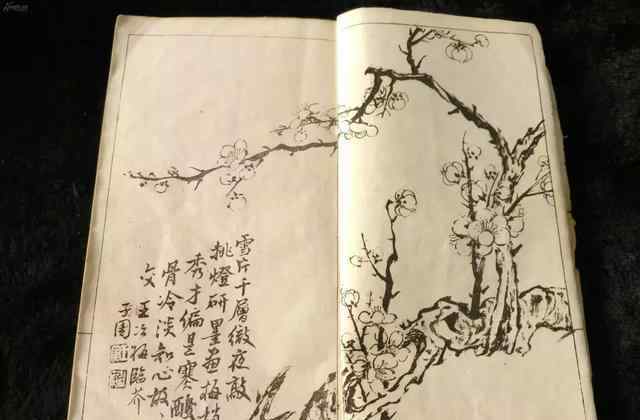 雪片千層徹夜敲
挑燈研墨畫梅梢
秀才偏是寒酸
骨冷淡知心故
交 王冶梅臨芥
子園